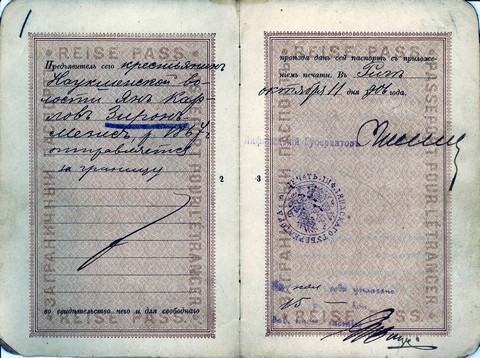 1
REISE PASS.
Предъявитель сего крестьянинъ
Наукшенской во-
лости Янъ Кар-
ловъ Зиронъ
отправляется
за границу
во свидѣтельство чего и для свободнаго
REISE PASS.
ЗАГРАНИЧНЫЙ ПАСПОРТЪ
PASSEPORT POUR L'ÉTRANGER
2
3
REISE PASS.
проѣзда данъ сей паспортъ съ приложе-
ніемъ печати. Въ Ригѣ
октября 11 дня 1906 года.
Лифляндскій Губернаторъ
ПЕЧАТЬ ЛИФЛЯНДСКАГО ГУБЕРНАТОРА
15
REISE PASS.
ЗАГРАНИЧНЫЙ ПАСПОРТЪ
PASSEPORT POUR L'ÉTRANGER